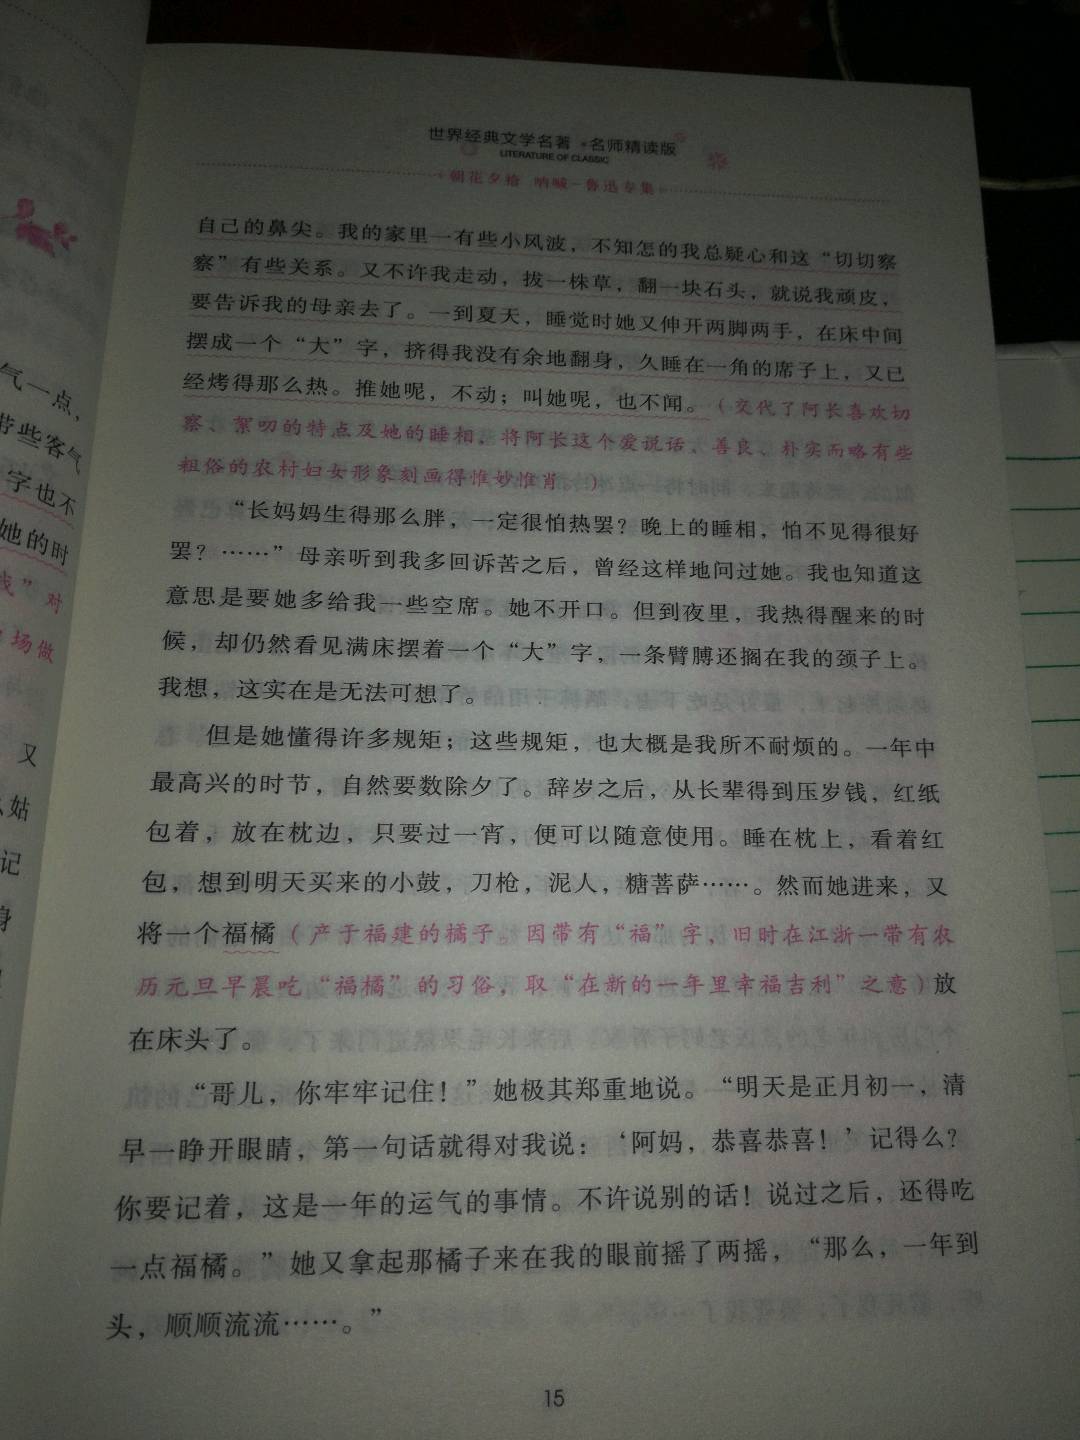 世界经典文学名著·名师精读版
LITERATURE OF CLASSIC
朝花夕拾 呐喊-鲁迅专集
自己的鼻尖。我的家里一有些小风波，不知怎的我总疑心和这“切切察
察”有些关系。又不许我走动，拔一株草，翻一块石头，就说我顽皮，
要告诉我的母亲去了。一到夏天，睡觉时她又伸开两脚两手，在床中间
摆成一个“大”字，挤得我没有余地翻身，久睡在一角的席子上，又已
经烤得那么热。推她呢，不动；叫她呢，也不闻。（交代了阿长喜欢切
察、絮叨的特点及她的睡相，将阿长这个爱说话、善良、朴实而略有些
粗俗的农村妇女形象刻画得惟妙惟肖。）
“长妈妈生得那么胖，一定很怕热罢？晚上的睡相，怕不见得很好
罢？……”母亲听到我多回诉苦之后，曾经这样地问过她。我也知道这
意思是要她多给我一些空席。她不开口。但到夜里，我热得醒来的时
候，却仍然看见满床摆着一个“大”字，一条臂膊还搁在我的颈子上。
我想，这实在是无法可想了。
但是她懂得许多规矩；这些规矩，也大概是我所不耐烦的。一年中
最高兴的时节，自然要数除夕了。辞岁之后，从长辈得到压岁钱，红纸
包着，放在枕边，只要过一宵，便可以随意使用。睡在枕上，看着红
包，想到明天买来的小鼓，刀枪，泥人，糖菩萨……。然而她进来，又
将一个福橘（产于福建的橘子。因带有“福”字，旧时在江浙一带有农
历元旦早晨吃“福橘”的习俗，取“在新的一年里幸福吉利”之意）放
在床头了。
“哥儿，你牢牢记住！”她极其郑重地说。“明天是正月初一，清
早一睁开眼睛，第一句话就得对我说：‘阿妈，恭喜恭喜！’记得么？
你要记着，这是一年的运气的事情。不许说别的话！说过之后，还得吃
一点福橘。”她又拿起那橘子来在我的眼前摇了两摇，“那么，一年到
头，顺顺流流……。”
15
气一点，
些客气
字也不
她的时
”对
场做
又
姑
记